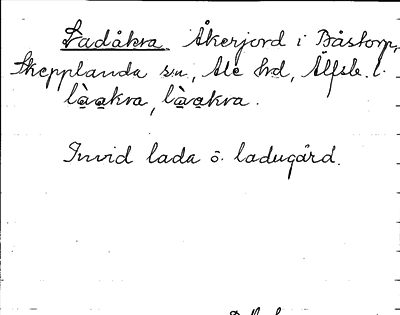 Ladåkra. Åkerjord i Båstorp,
Skepplanda sn, Ale hd, Älfsb. l.
là̱a̱kra, là̱a̱kra.
Invid lada o. ladugård.